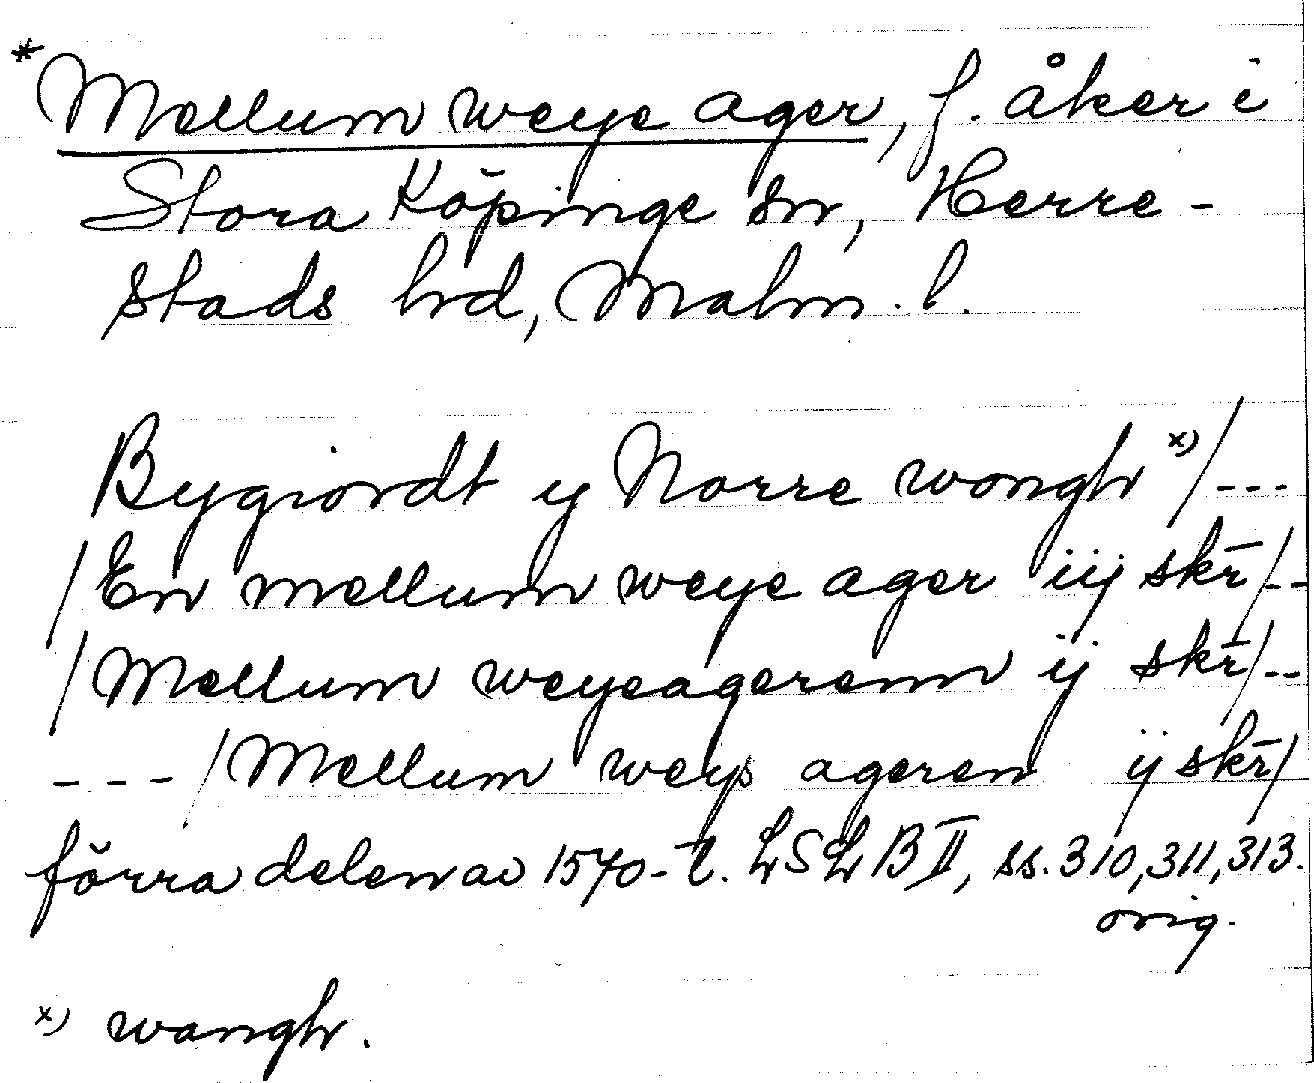 * Mellum weye ager, f. åker i
Stora Köpinge sn, Herre-
stads hd, Malm. l.
Bygiordt y Norre wongh x) / ---
/ En mellum weye ager iij skr̄ / --
/ Mellum weyeagerenn ij skr̄ / --
--- / Mellum weys ageren ij skr̄ /
förra delen av 1570-t. LSLB II, ss. 310, 311, 313.
orig.
x) wangh.